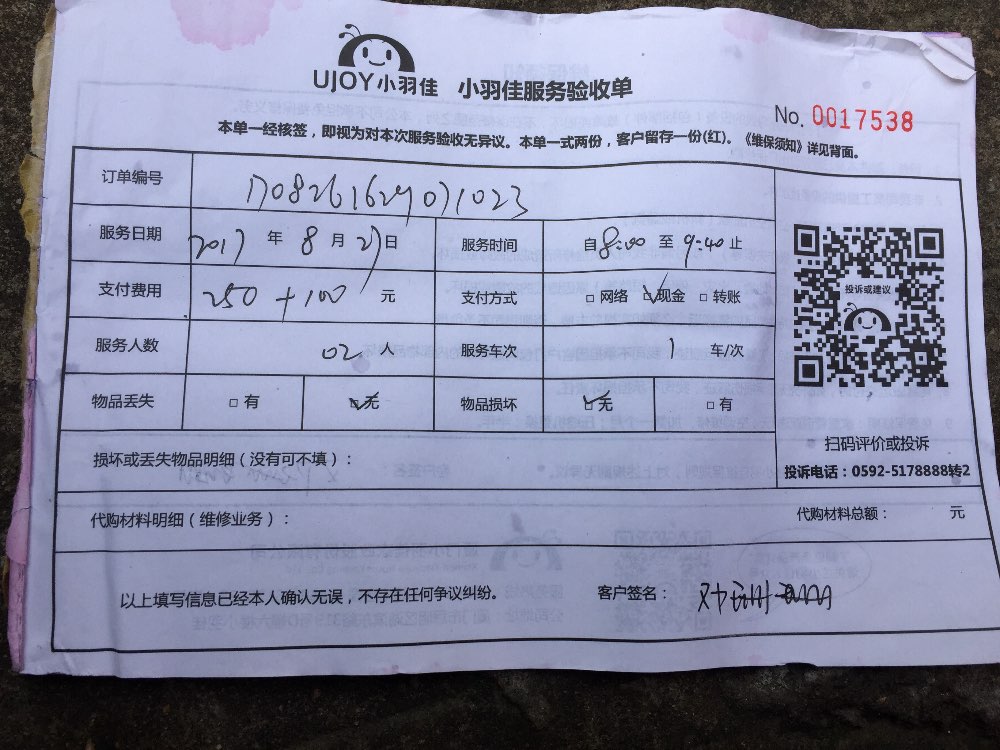 UJOY小羽佳 小羽佳服务验收单
No. 0017538
本单一经核签，即视为对本次服务验收无异议。本单一式两份，客户留存一份(红)。《维保须知》详见背面。
订单编号 1708261629071023
服务日期 2017 年 8 月 27 日 服务时间 自 8:00 至 9:40 止
支付费用 250+100 元 支付方式 □网络 ☑现金 □转账
服务人数 02 服务车次 1 车/次
物品丢失 □有 ☑无 物品损坏 ☑无 □有
投诉或建议
扫码评价或投诉
投诉电话：0592-5178888转2
损坏或丢失物品明细（没有可不填）：
代购材料明细（维修业务）： 代购材料总额： 元
以上填写信息已经本人确认无误，不存在任何争议纠纷。 客户签名：